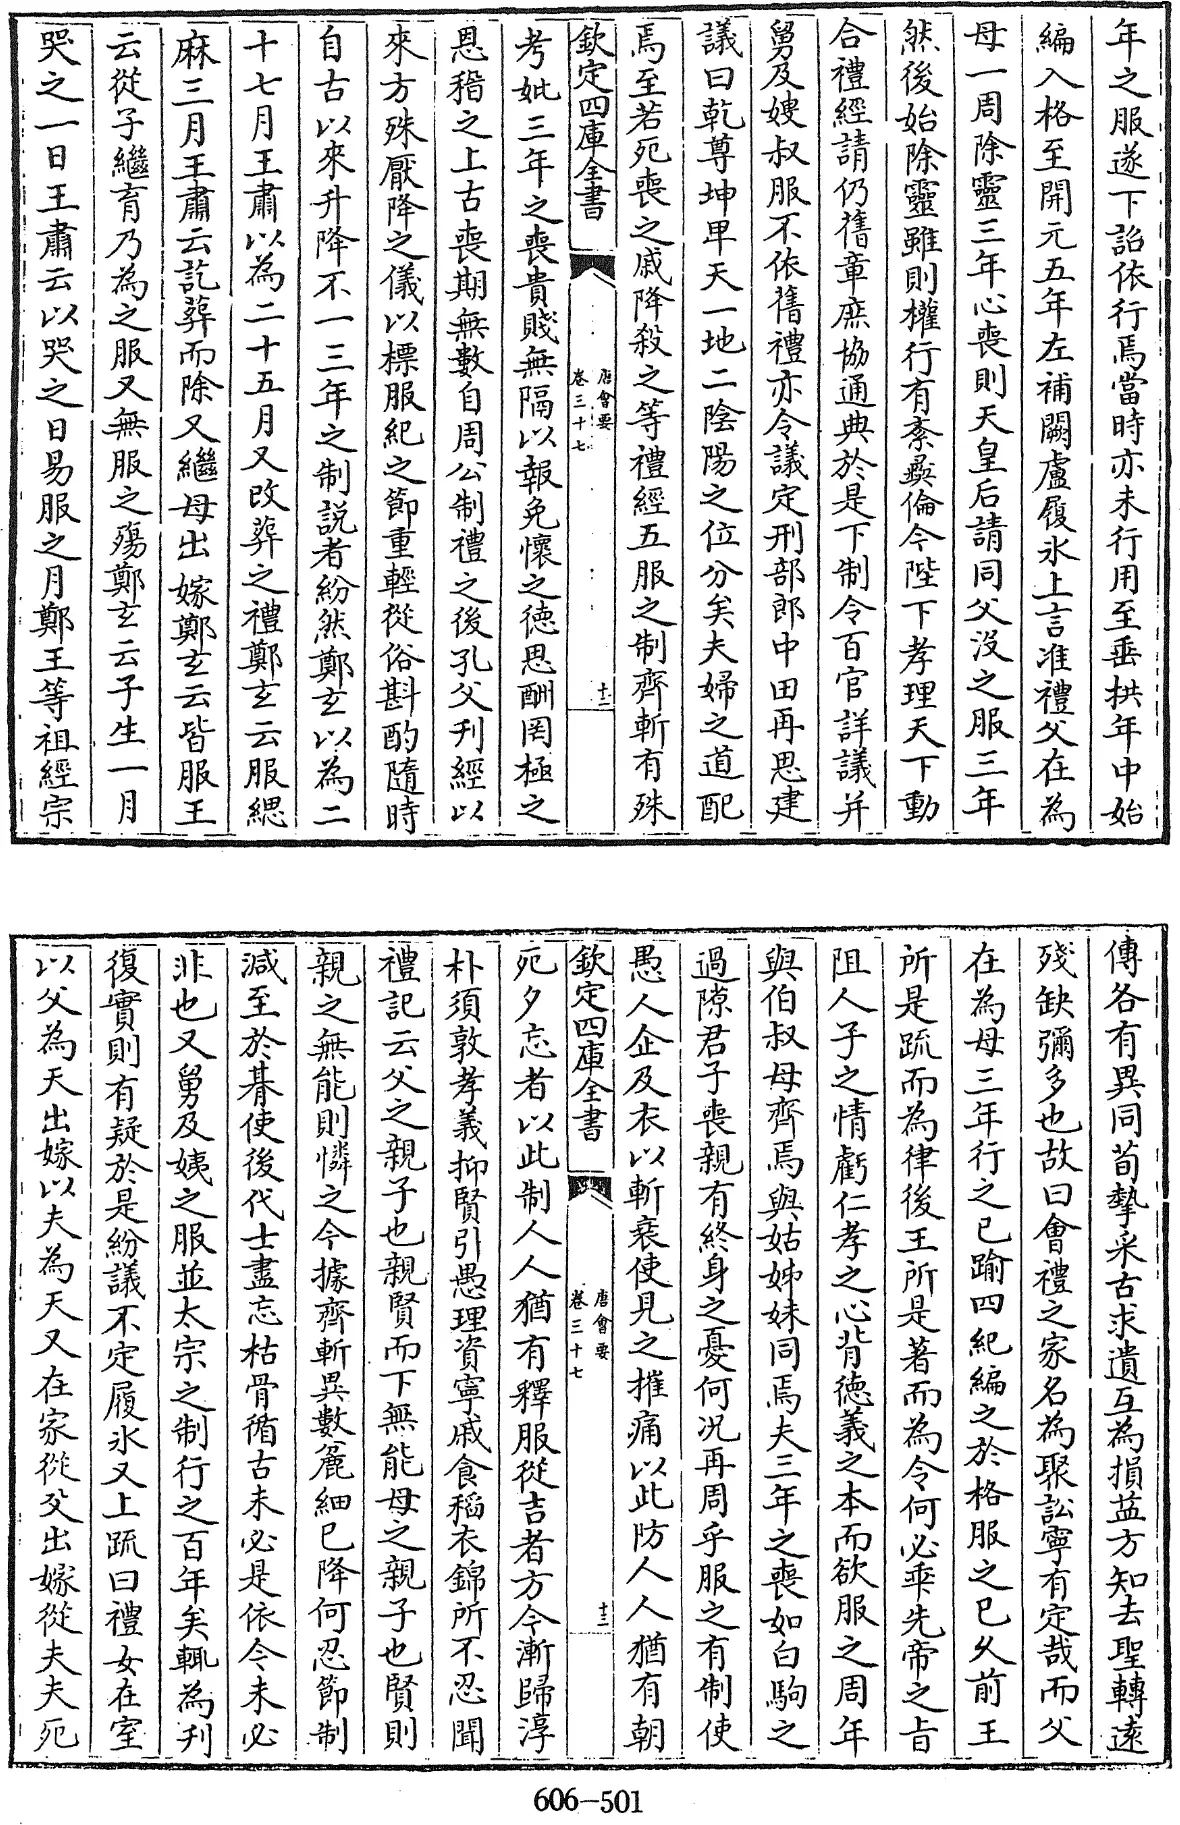 年之服遂下詔依行焉當時亦未行用至垂拱年中始
編入格至開元五年左補闕盧履氷上言准禮父在為
母一周除靈三年心喪則天皇后請同父沒之服三年
然後始除靈雖則權行有紊彛倫今陛下孝理天下動
合禮經請仍舊章庶協通典於是下制令百官詳議并
舅及嫂叔服不依舊禮亦令議定刑部郎中田再思建
議曰乾尊坤卑天一地二陰陽之位分矣夫婦之道配
焉至若死喪之戚降殺之等禮經五服之制齊斬有殊
欽定四庫全書
唐會要
卷三十七
十二
考妣三年之喪貴賤無隔以報免懷之徳思酬罔極之
恩稽之上古喪期無數自周公制禮之後孔父刋經以
來方殊厭降之儀以標服紀之節重輕從俗斟酌隨時
自古以來升降不一三年之制説者紛然鄭玄以為二
十七月王肅以為二十五月又改葬之禮鄭玄云服緦
麻三月王肅云訖葬而除又繼母出嫁鄭玄云皆服王
云從子繼育乃為之服又無服之殤鄭玄云子生一月
哭之一日王肅云以哭之日易服之月鄭王等祖經宗
傳各有異同荀摯采古求遺互為損益方知去聖轉遠
殘缺彌多也故曰會禮之家名為聚訟寧有定哉而父
在為母三年行之已踰四紀編之於格服之已久前王
所是疏而為律後王所是著而為令何必乖先帝之旨
阻人子之情虧仁孝之心背徳義之本而欲服之周年
與伯叔母齊焉與姑姊妹同焉夫三年之喪如白駒之
過隙君子喪親有終身之憂何况再周乎服之有制使
愚人企及衣以斬衰使見之摧痛以此防人人猶有朝
欽定四庫全書
唐會要
卷三十七
十三
死夕忘者以此制人人猶有釋服從吉者方今漸歸淳
朴須敦孝義抑賢引愚理資寧戚食稻衣錦所不忍聞
禮記云父之親子也親賢而下無能母之親子也賢則
親之無能則憐之今據齊斬異數麄細已降何忍節制
減至於朞使後代士盡忘枯骨循古未必是依今未必
非也又舅及姨之服並太宗之制行之百年矣輒為刋
復實則有疑於是紛議不定履氷又上疏曰禮女在室
以父為天出嫁以夫為天又在家從父出嫁從夫夫死
606-501